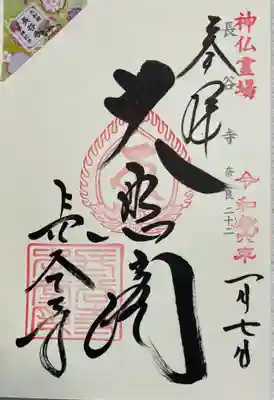 神仏霊場
長谷寺
奈良二十二
奉拝
大悲閣
長谷寺
令和
月七日